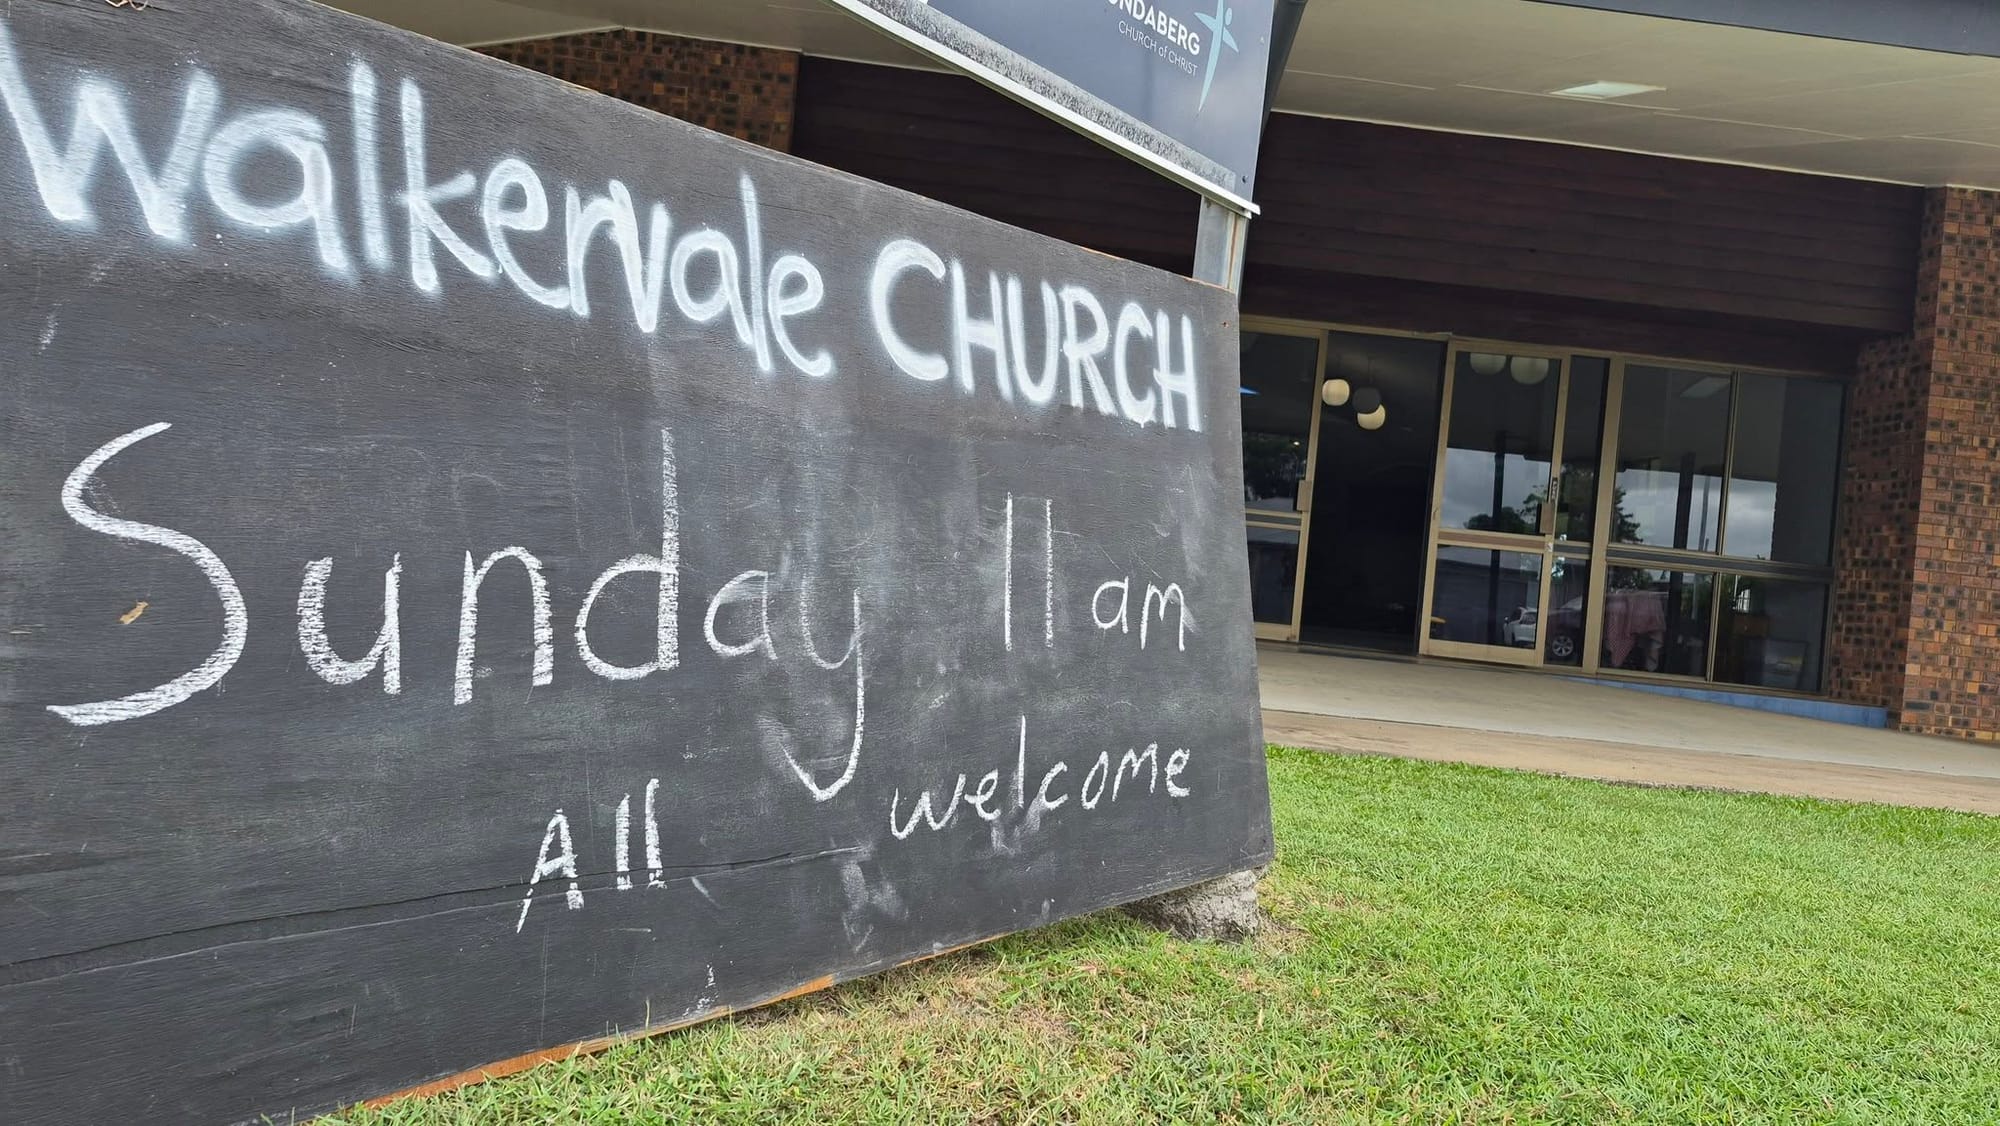 NDABERG
CHURCH of CHRIST
Walkervale CHURCH
Sunday 11am
All welcome